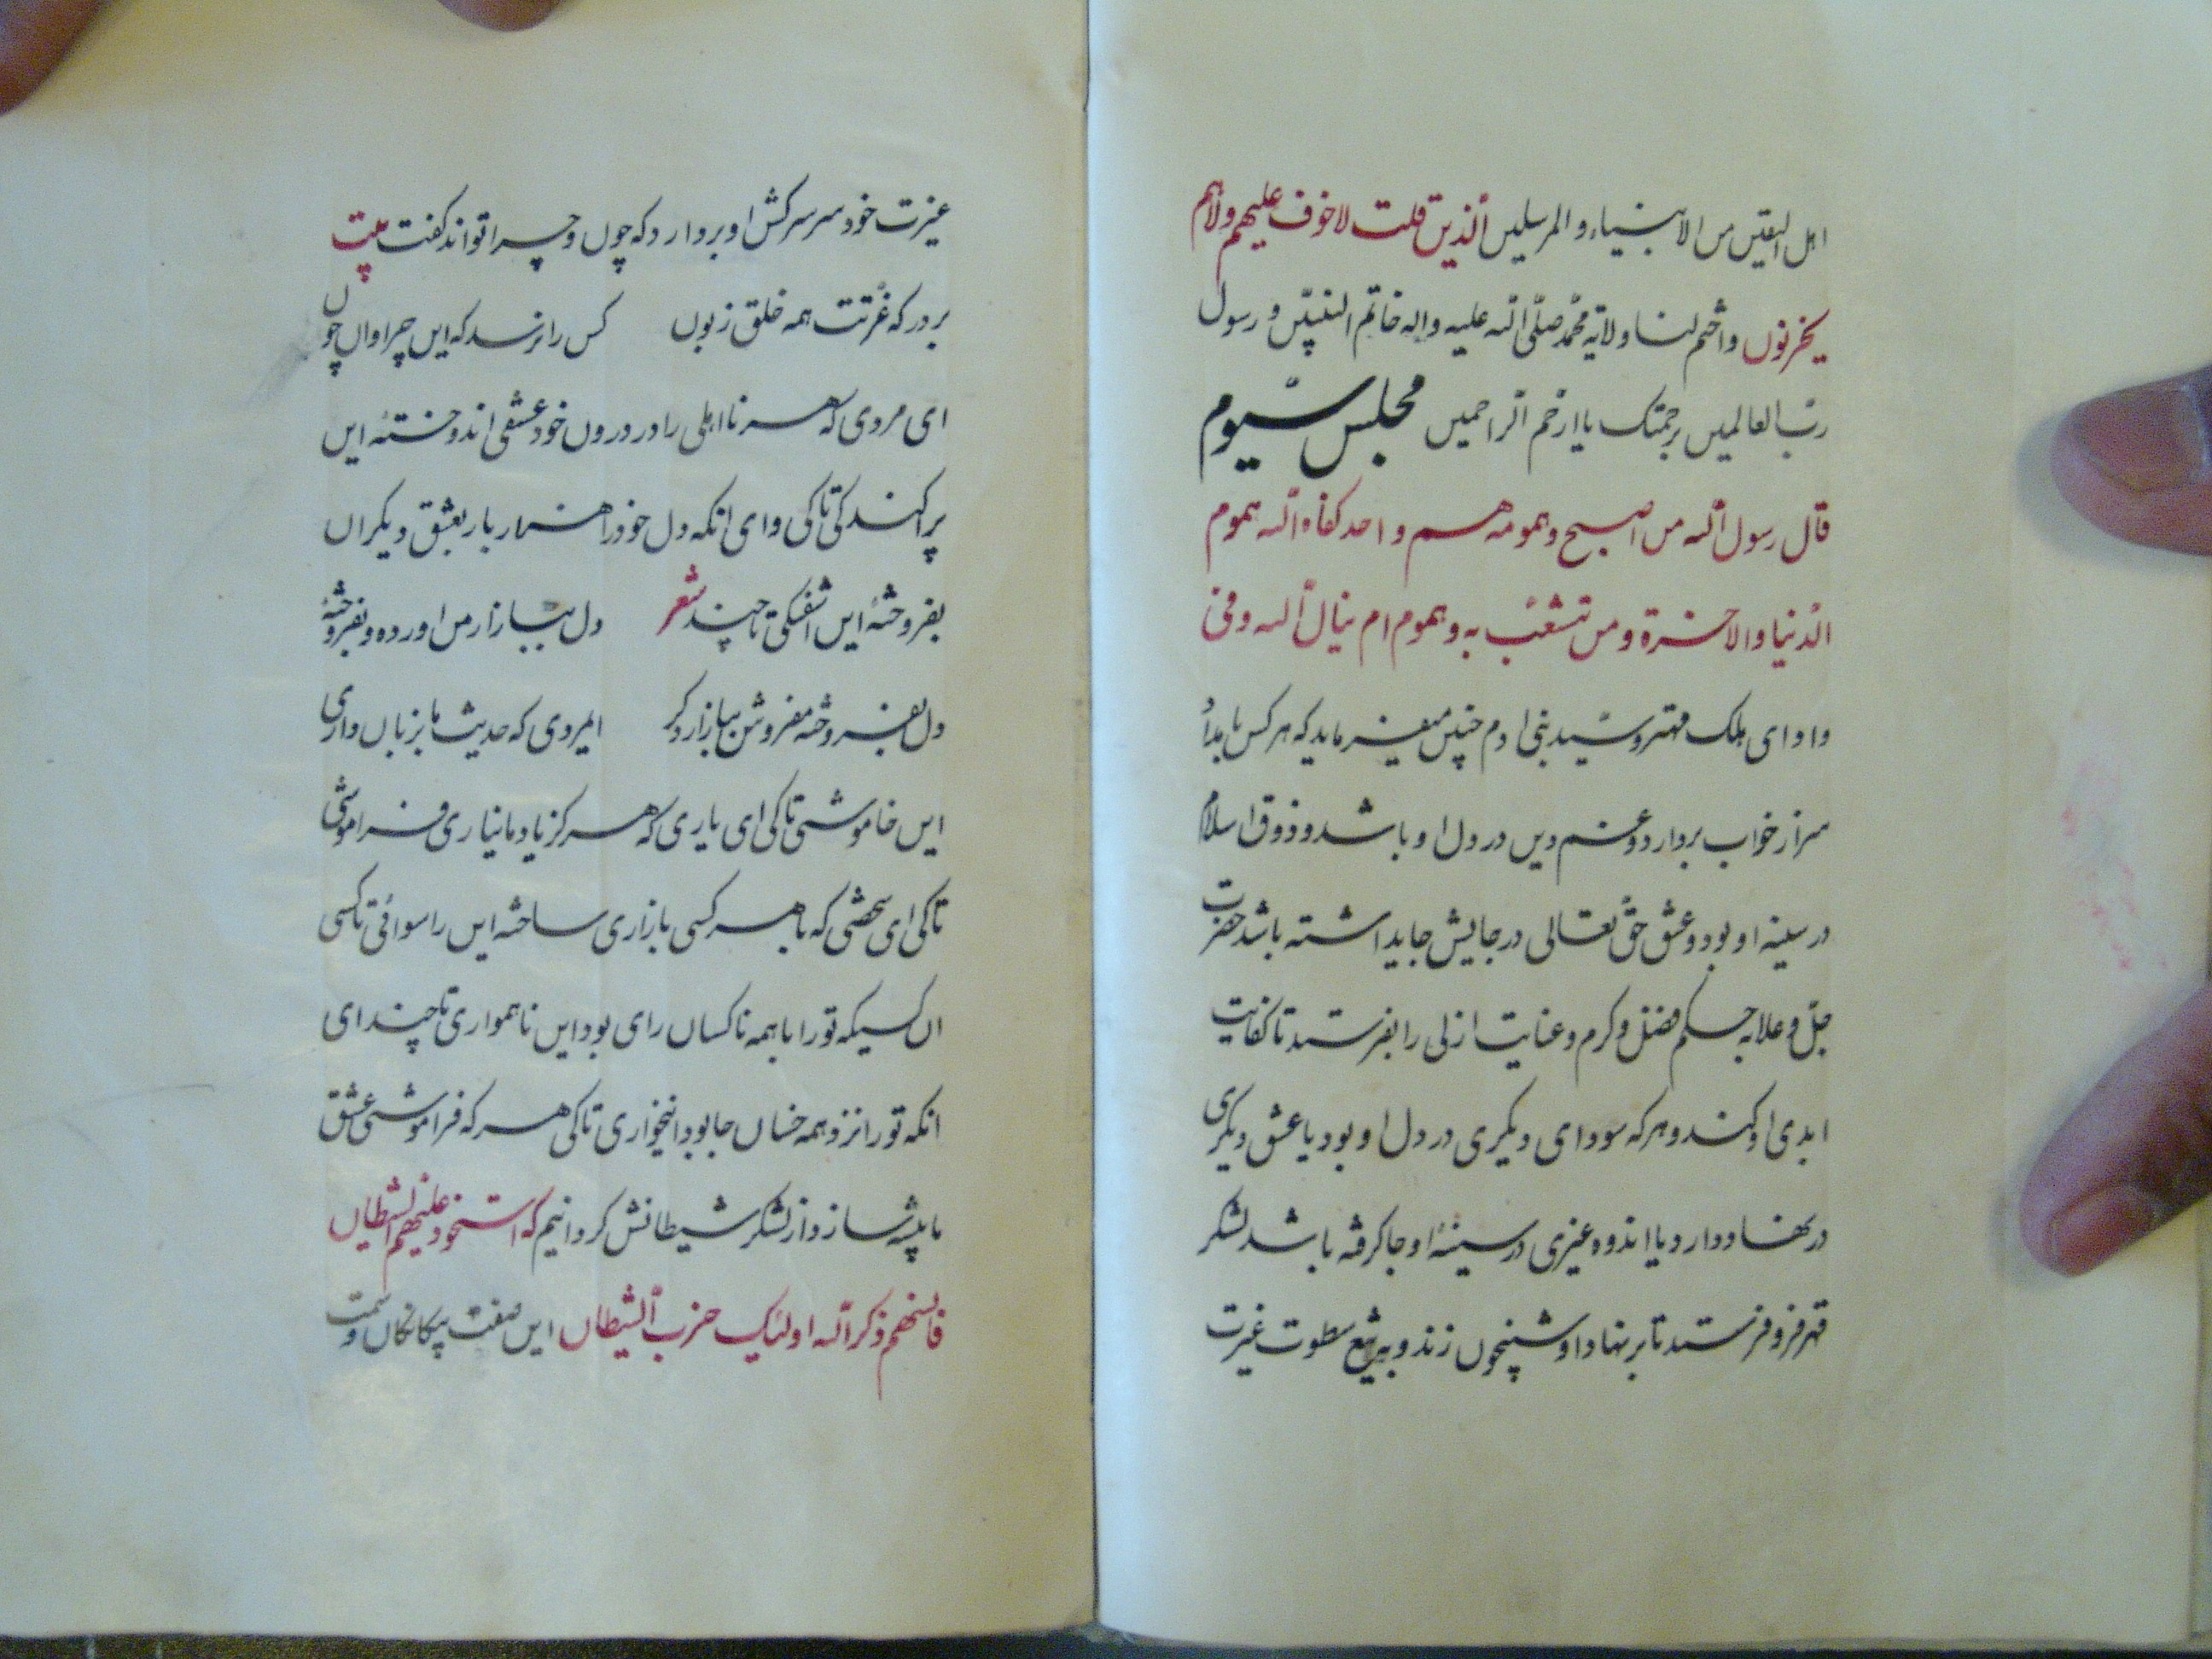 اهل الیقین من الانبیاء و المرسلین الذین قلت لا خوف علیهم ولاهم
یحزنون واختم لنا ولایة محمد صلّی الله علیه واله خاتم النبیّین و رسول
ربّ العالمین برحمتک یا ارحم الراحمین مجلس سیّوم
قال رسول الله من اصبح وهمومه هم واحد کفاه الله هموم
الدنیا والاخرة ومن تشعّب به وهموم ام ینال الله وفی
وادای هلک مهتر و سیّد بنی ادم چنین میفرماید که هر کس بامداد
سر از خواب بردارد و غم دین در دل او باشد و ذوق اسلام
در سینه او بود و عشق حق تعالی در جانش جایداشته باشد حضرت
جلّ وعلا به حکم فضل و کرم و عنایت ازلی را بفرستد تا کفایت
ابدی او کند و هر که سودای دیگری در دل او بود یا عشق دیگری
در نهاد دارد یا اندوه غیری در سینهٔ او جا گرفته باشد لشکر
قهر فرو فرستد تا بر نهاد او شبیخون زند و به تیغ سطوت غیرت
عیزت خود سر سرکش او بردارد که چون و چرا تواند گفت بیت
بر درگه عزّتت همه خلق زبون کس را نرسد که این چرا وان چون
ای مردی که هر نا اهلی را در درون خود عشقی اندوخته این
پراکندگی تاکی وای انکه دل خود را هزار بار بعشق دیگران
بفروخته این اشفتگی تا چند شعر دل ببازار من اورده و بفروخته
دل بفروخته مفروش ببازار دگر ایمردی که حدیث ما بر زبان داری
این خاموشی تاکی ای یاری که هرگز یاد ما نیاری فراموشی
تاکی ای شخصی که با هر کسی بازاری ساخته این رسوائی تاکی
ان کسیکه تو را با همه ناکسان رای بود این ناهمواری تا چند ای
انکه تو را نزد همه خسان جا بود این خواری تاکی هر که فراموشی عشق
ما پیشه سازد از لشکر شیطانش گردانیم که استحوذ علیهم الشیطان
فانسیهم ذکر الله اولئک حزب الشیطان این صفت بیگانگان